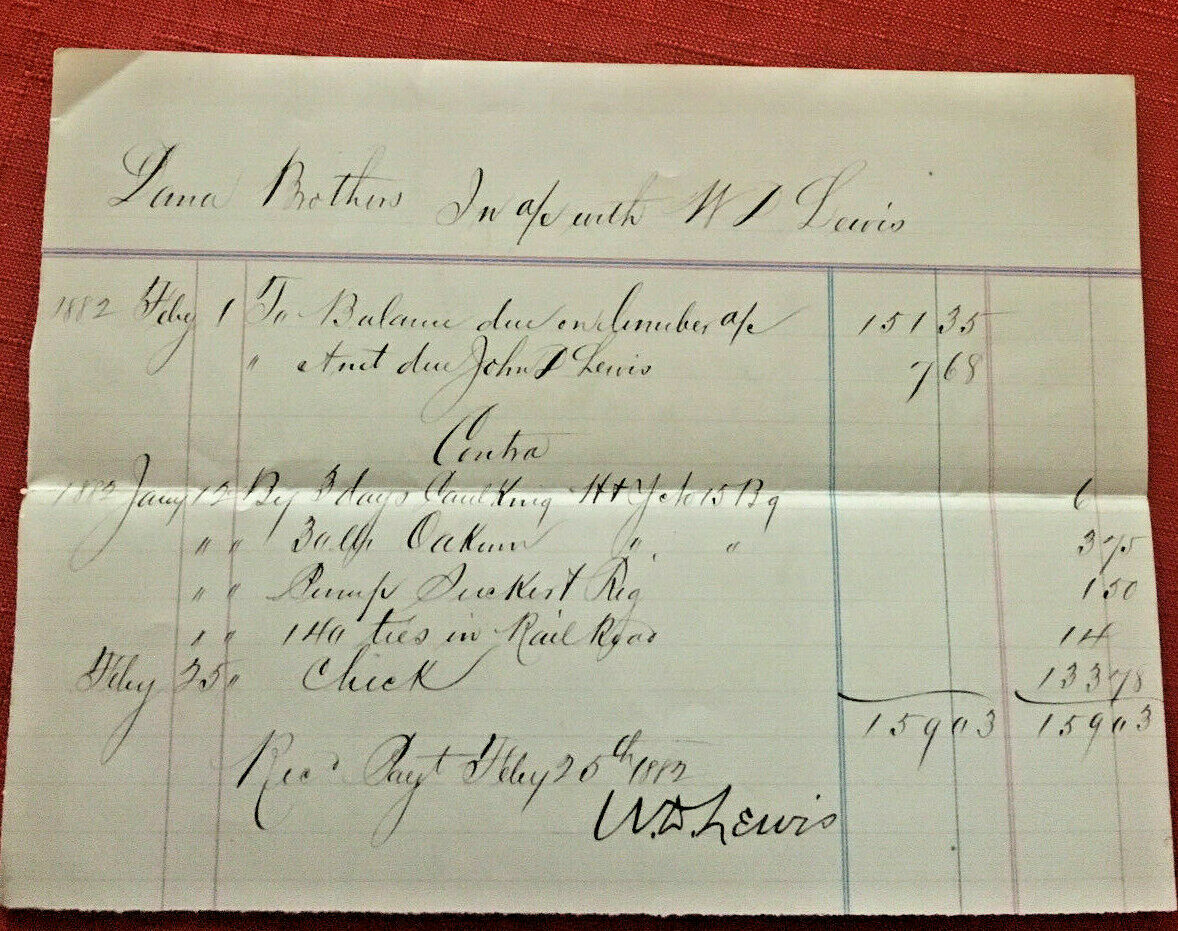 Dana Brothers In a/c with W D Lewis
1882 Feby 1 To Balance due on Lumber a/c 151 35
" Amt due John D Lewis 7 68
Contra
1882 Jany 12 By 3 days Caulking No 15 Bg 6
" " Oakum " " 3 75
" " Pump Sucker & Rig 1 50
" " 140 ties in Rail Road 14
Feby 25 " Check 133 78
159 03 159 03
Recd Payt Feby 25th 1882
W.D. Lewis